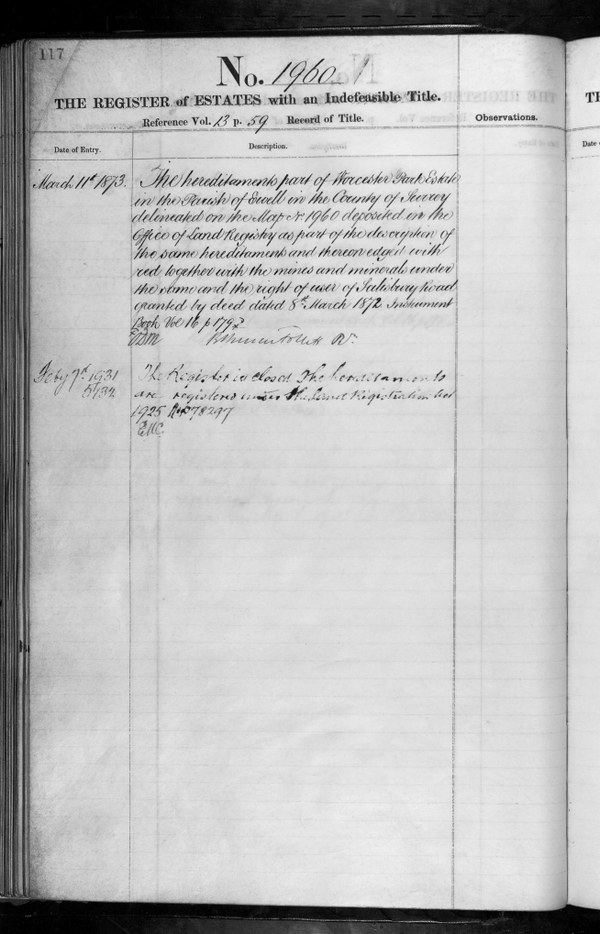 117
No. 1960
THE REGISTER of ESTATES with an Indefeasible Title.
Reference Vol. 13 p. 59 Record of Title.
Observations.
Date of Entry.
Description.
March 11th 1873.
The hereditaments part of Worcester Park Estate
in the Parish of Ewell in the County of Surrey
delineated on the Map No 1960 deposited in the
Office of Land Registry as part of the description of
the same hereditaments and thereon edged with
red together with the mines and minerals under
the same and the right of user of Salisbury Road
granted by deed dated 8th March 1872 Instrument
Book Vol 16 p 179
Feby 7th 1931
The Register is closed The hereditaments
are registered under the Land Registration Act
1925 78297